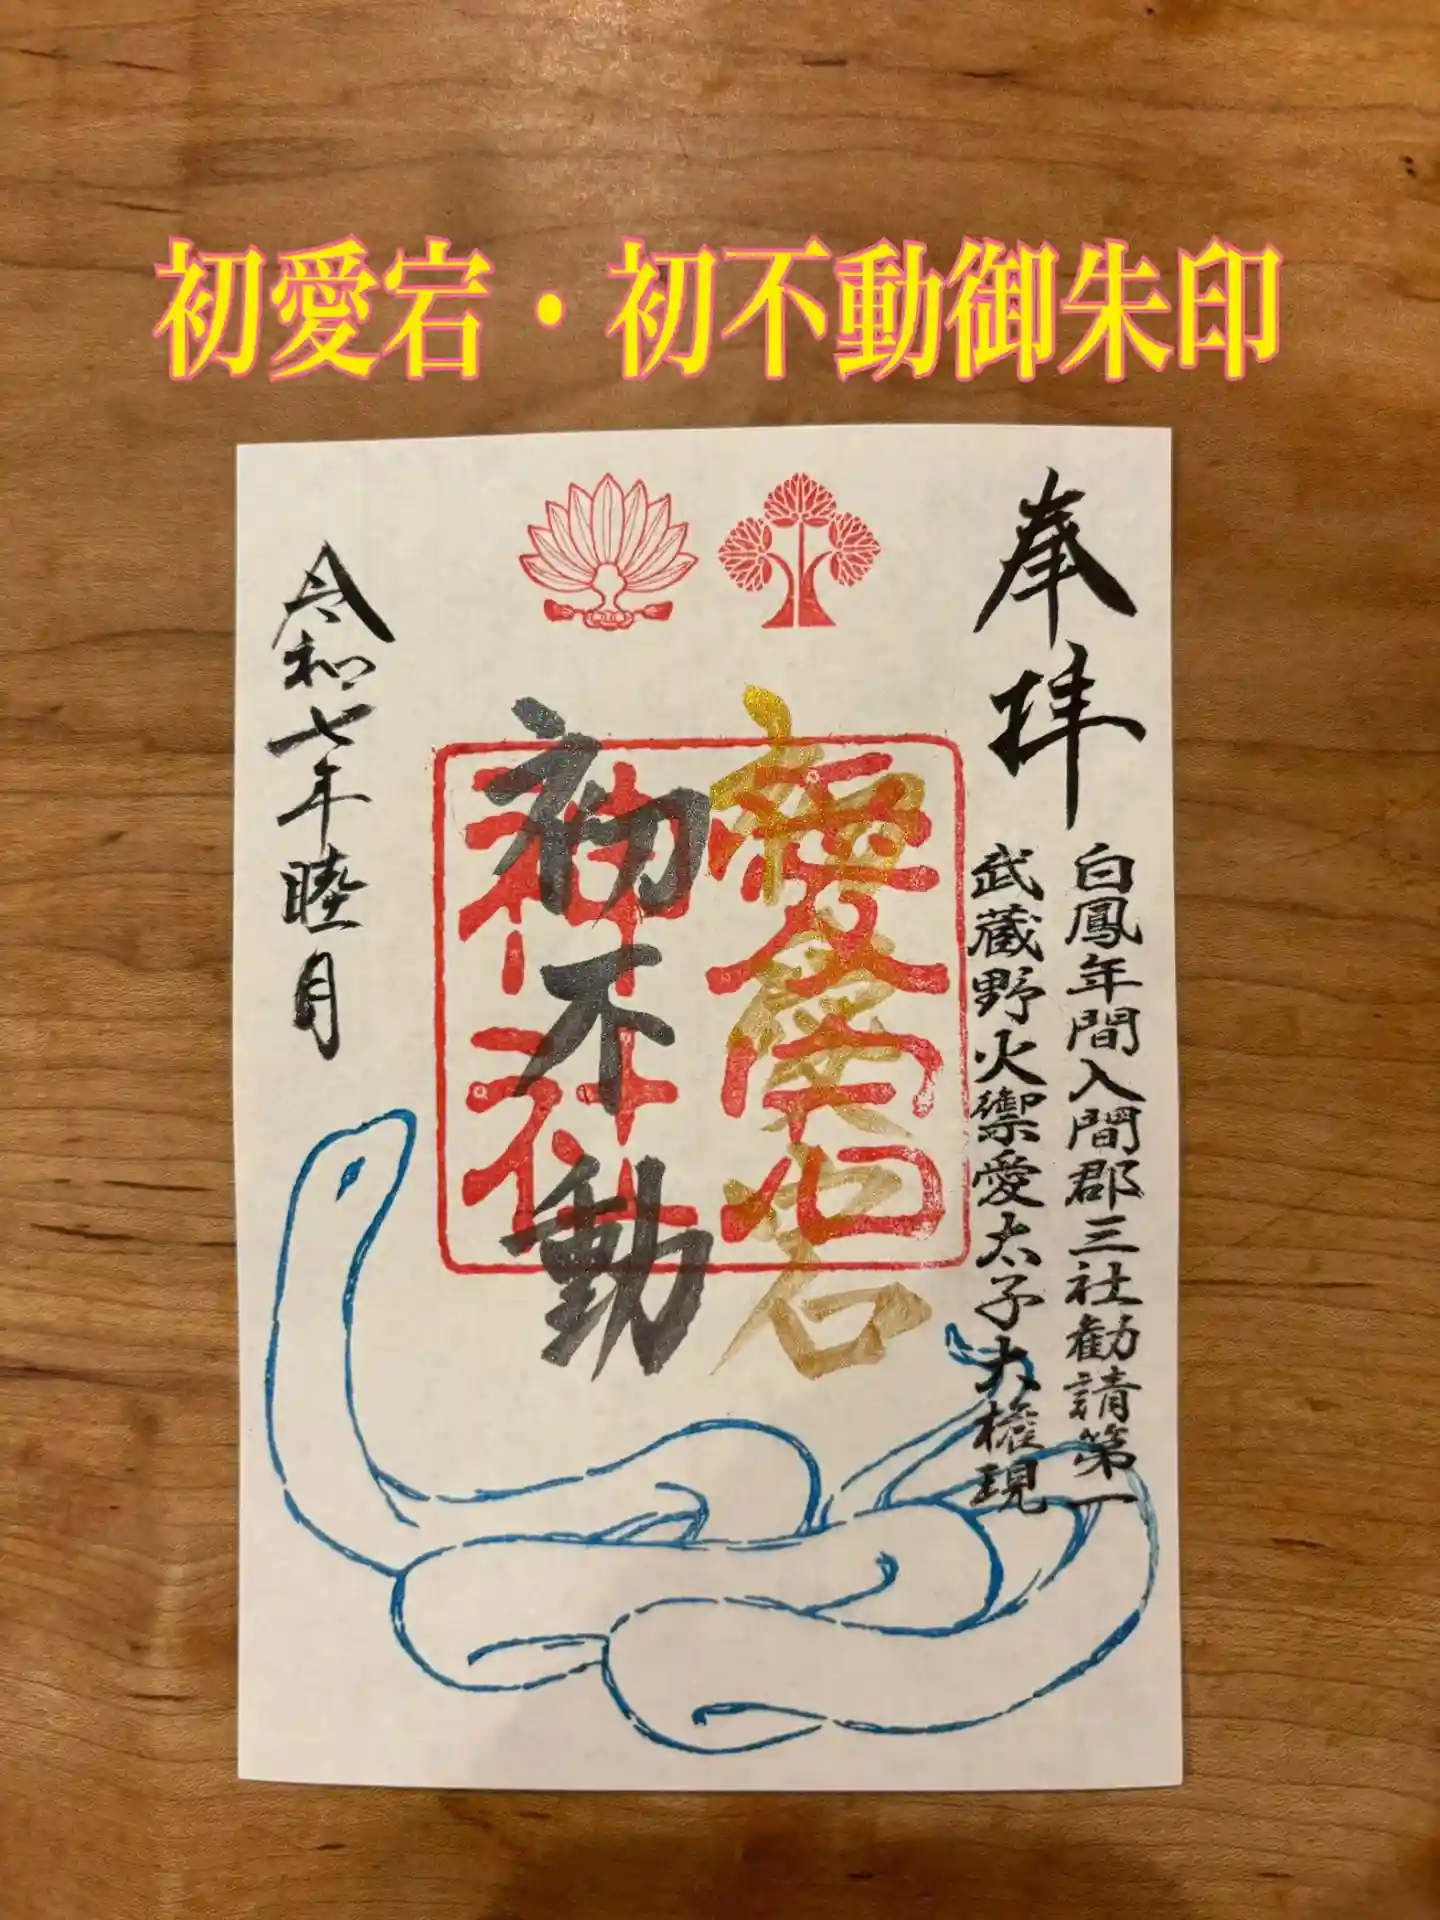 初愛宕・初不動御朱印
奉拝
白鳳年間入間郡三社勧請第一
武蔵野火禦愛太子大権現
初愛宕
初不動
愛宕
神社
令和七年睦月